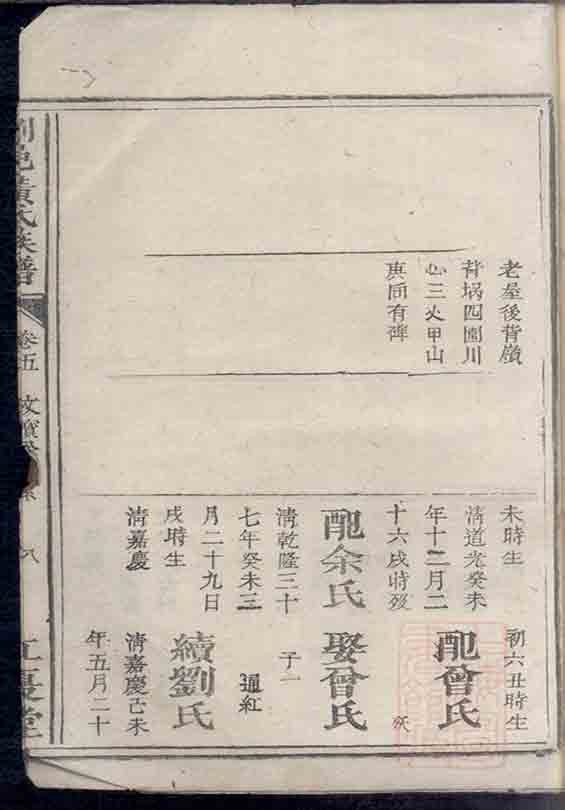 老屋後背嶺
四圍川
心三火甲山
庚同有碑
未時生
清道光癸未
年十二月二
十六戌時歿
配余氏
清乾隆三十
七年癸未三
月二十九日
戌時生
清嘉慶
初六丑時生
配曾氏
娶曾氏
子一
通紅
續劉氏
清嘉慶己未
年五月二十
邑黃氏族譜
卷五
江夏堂